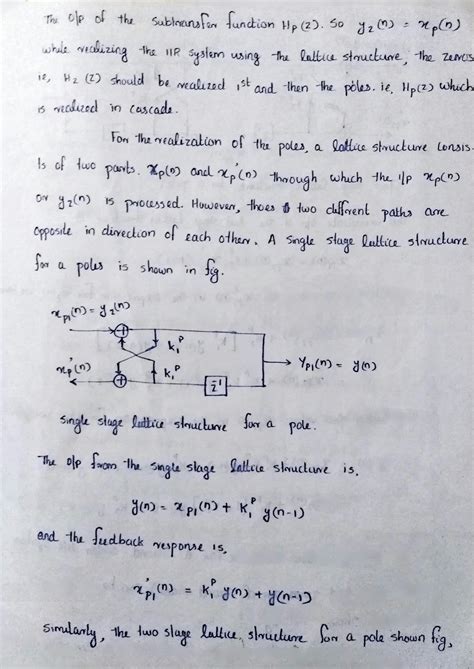 The o/p of the subtransfer function Hp(z). So y₂(n) = xp(n)
while realizing the IIR system using the lattice structure, the zeros
ie, H₂(z) should be realized 1st and then the poles. ie, Hp(z) which
is realized in cascade.
For the realization of the poles, a lattice structure consis-
ts of two parts. xp(n) and xp'(n) through which the i/p xp(n)
or y₂(n) is processed. However, thoes two different paths are
opposite in direction of each other. A single stage lattice structure
for a poles is shown in fig.
xp₁(n) = y₂(n)
+
k₁ᵖ
xp'(n)
k₁ᵖ
+
z⁻¹
Yp₁(n) = y(n)
single stage lattice structure for a pole.
The o/p from the single stage lattice structure is,
y(n) = xp₁(n) + K₁ᵖ y(n-1)
and the feedback response is,
x'p₁(n) = K₁ᵖ y(n) + y(n-1)
Similarly, the two stage lattice, structure for a pole shown fig,